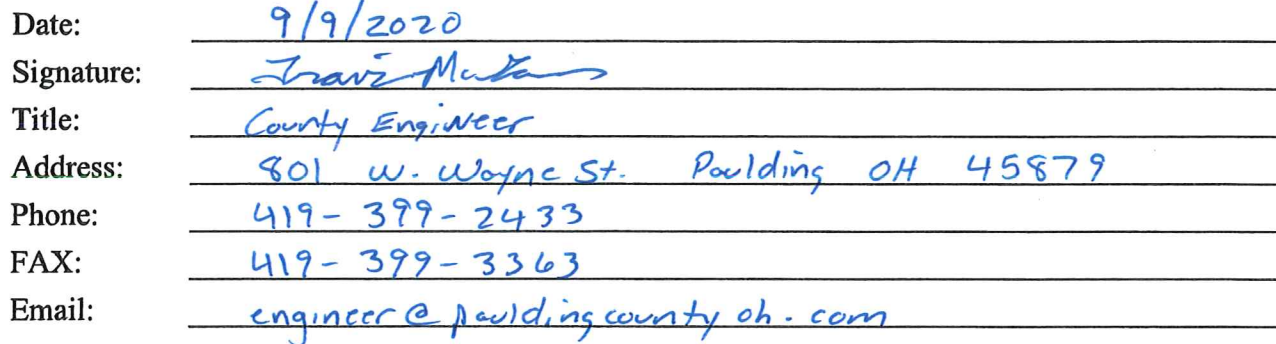 Date: 9/9/2020
Signature: Travis
Title: County Engineer
Address: 801 W. Wayne St. Paulding OH 45879
Phone: 419-399-2433
FAX: 419-399-3363
Email: engineer@pauldingcountyoh.com